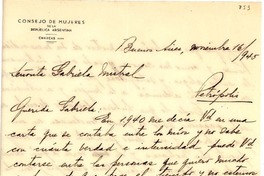 CONSEJO DE MUJERES
DE LA
REPUBLICA ARGENTINA
CHARCAS
Buenos Aires, noviembre 16/
/945
Señorita Gabriela Mistral
Petrópolis
Querida Gabriela: En 1940 me decía Vd en una
carta que se contaba entre las mías y no sabe
con cuánta verdad e intensidad puede Vd
contarse entre las personas que quiero mucho